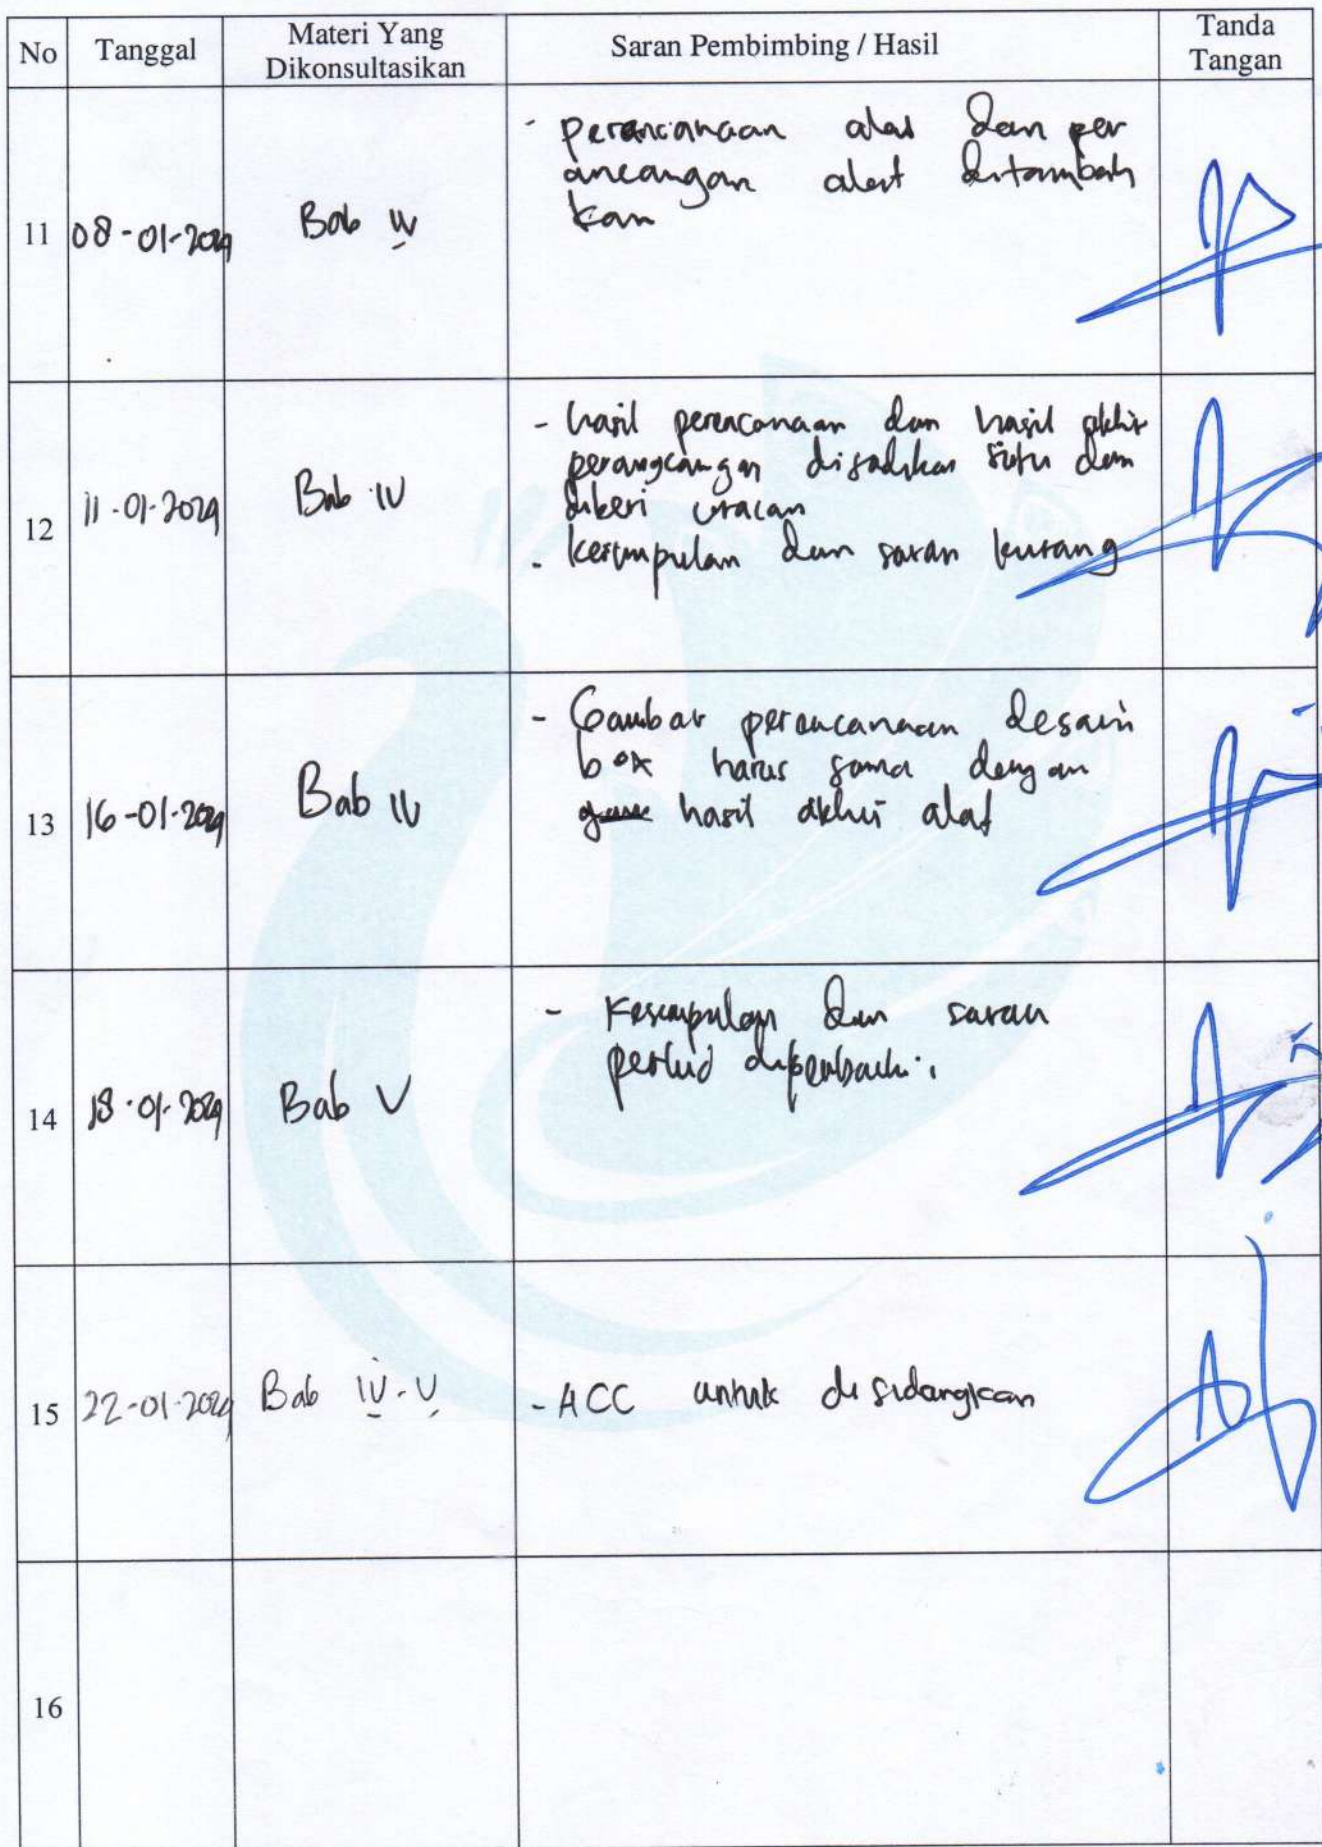 No Tanggal Materi Yang Dikonsultasikan Saran Pembimbing / Hasil Tanda Tangan
11 08-01-2024 Bab IV
- perencanaan alat dan per
ancangan alat ditambah
kan
12 11-01-2024 Bab IV
- hasil perencanaan dan hasil akhir
perangcangan disadukan satu dan
diberi uraian
- kesimpulan dan saran kurang
13 16-01-2024 Bab IV
- Gambar perancanaan desain
box harus sama dengan
hasil akhir alat
14 18-01-2024 Bab V
- Kesimpulan dan saran
perlu diperbaiki
15 22-01-2024 Bab IV-V
- ACC untuk disidangkan
16